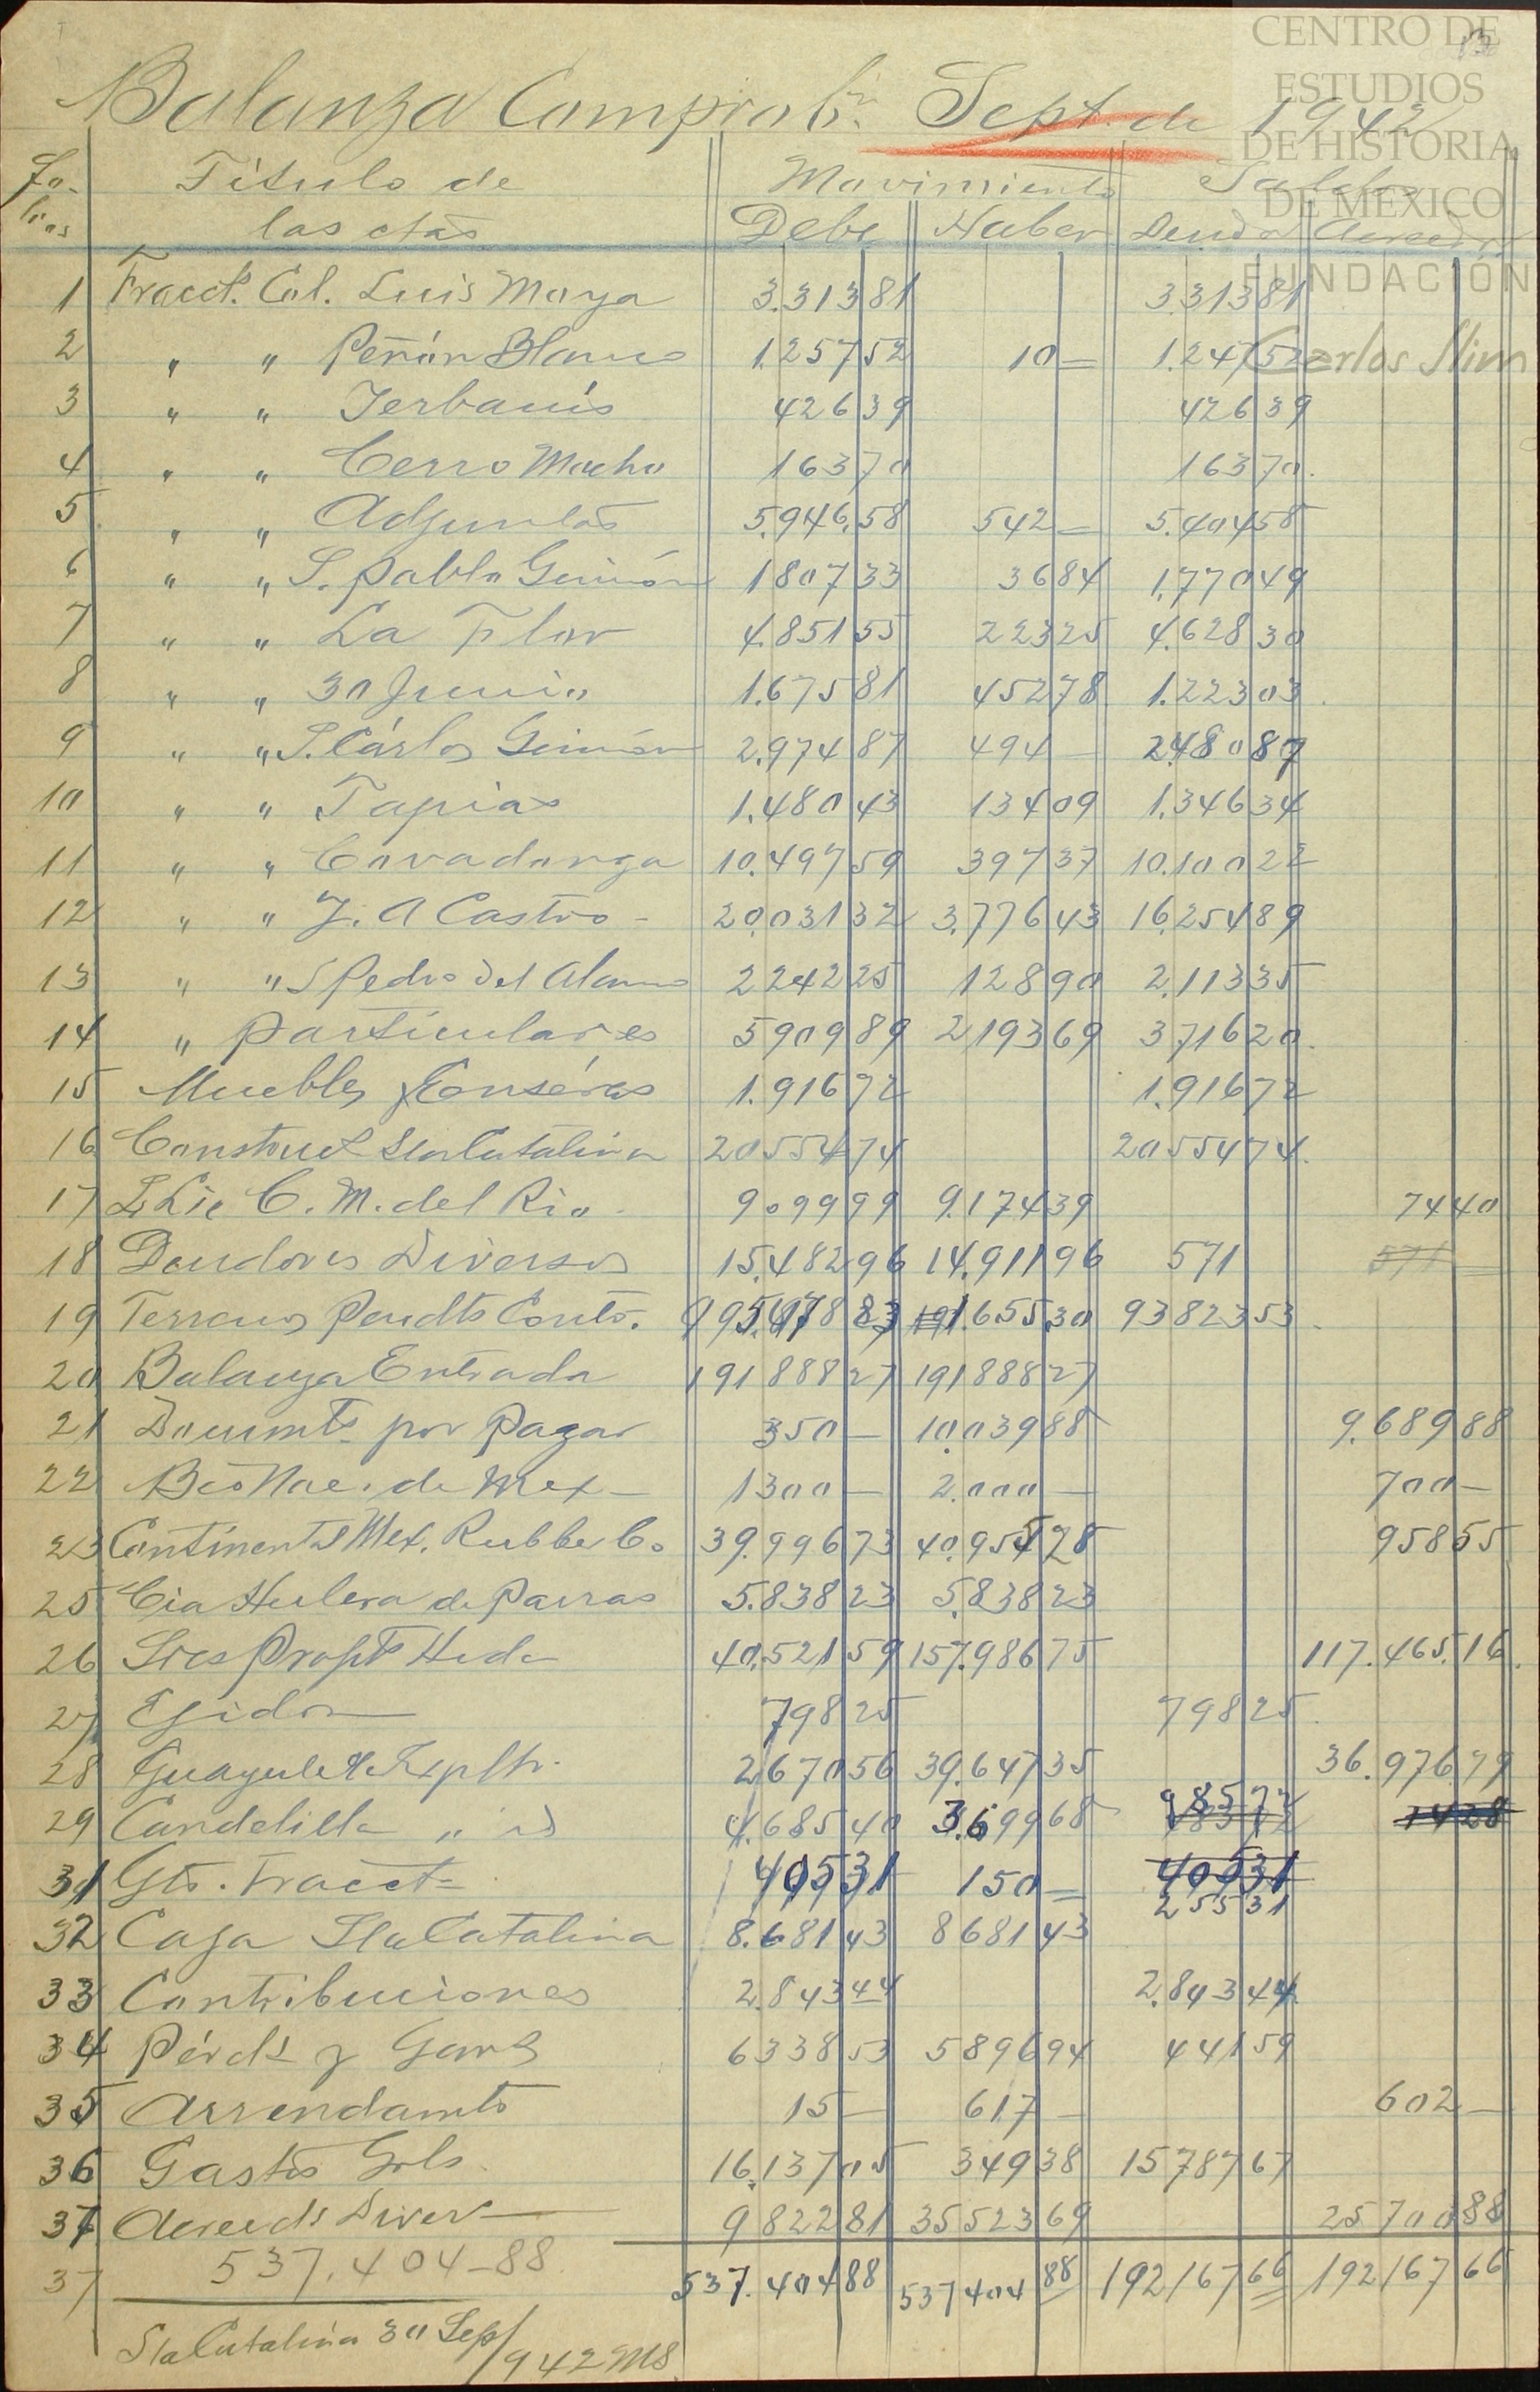 CENTRO DE
ESTUDIOS
DE HISTORIA
DE MEXICO
FUNDACIÓN
Carlos Slim
Balanza Comprobn. Sept. de 1942
Fo- Titulo de Movimiento Saldos
lios las ctas Debe Haber Deudor Acreedor
1 Fracct. Col. Luis Moya 3.313 81 3.313 81
2 " " Peñón Blanco 1.257 52 10 — 1.247 52
3 " " Yerbanís 426 39 426 39
4 " " Cerro Mocho 163 70 163 70
5 " " Adjuntas 5.946.58 542 — 5.404 58
6 " " S. Pablo Guimón 1807 33 36 84 1.770 49
7 " " La Flor 4.851 55 223 25 4.628 30
8 " " 30 Junio 1.675 81 452 78 1.223 03
9 " " S. Cárlos Guimón 2.974 87 494 — 2480 87
10 " " Tapias 1.480 43 134 09 1.346 34
11 " " Covadonga 10.497 59 397 37 10.100 22
12 " " J. A Castro - 20.031 32 3.776 43 16.254 89
13 " " S Pedro del Alamo 2242 25 128 90 2.113 35
14 " Particulares 5909 89 2193 69 3716 20
15 Muebles y Enséres 1.916 72 1.916 72
16 Construct Sta Catalina 20554 74 20554 74
17 S. Lic C. M. del Rio 9099 99 9.174 39 74 40
18 Deudores Diversos 15.482 96 14.911 96 571 571
19 Terrenos Pendts Conts. 95.478 83 1.655 30 93823 53
20 Balanza Entrada 191888 27 191888 27
21 Documts por Pagar 350 — 10.039 88 9.689 88
22 Bco Nac. de Mex — 1300 — 2.000 — 700 —
23 Continental Mex. Rubber Co 39.996 73 40.955 28 958 55
25 Cia Hulera de Parras 5.838 23 5.838 23
26 Sres Propts Hcda 40.521 59 157.986 75 117.465.16
27 Ejidos 798 25 798 25
28 Guayule Cta Explt. 2670 56 39.647 35 36.976 79
29 Candelilla " id 4.685 40 3.699 68 985 72 14 28
31 Gts. Fracct 405 31 150 — 405 31
255 31
32 Caja Sta Catalina 8.681 43 8681 43
33 Contribuciones 2.843 44 2.843 44
34 Pérds y Gans 6338 53 5896 94 441 59
35 Arrendamts 15 — 617 — 602 —
36 Gastos Grls 16.137 05 349 38 15787 67
37 Acreeds Divers 9822 81 35523 69 25700 88
37 537.404-88 537.404 88 537404 88 192167 66 192167 66
Sta Catalina 30 Sep/942 MS